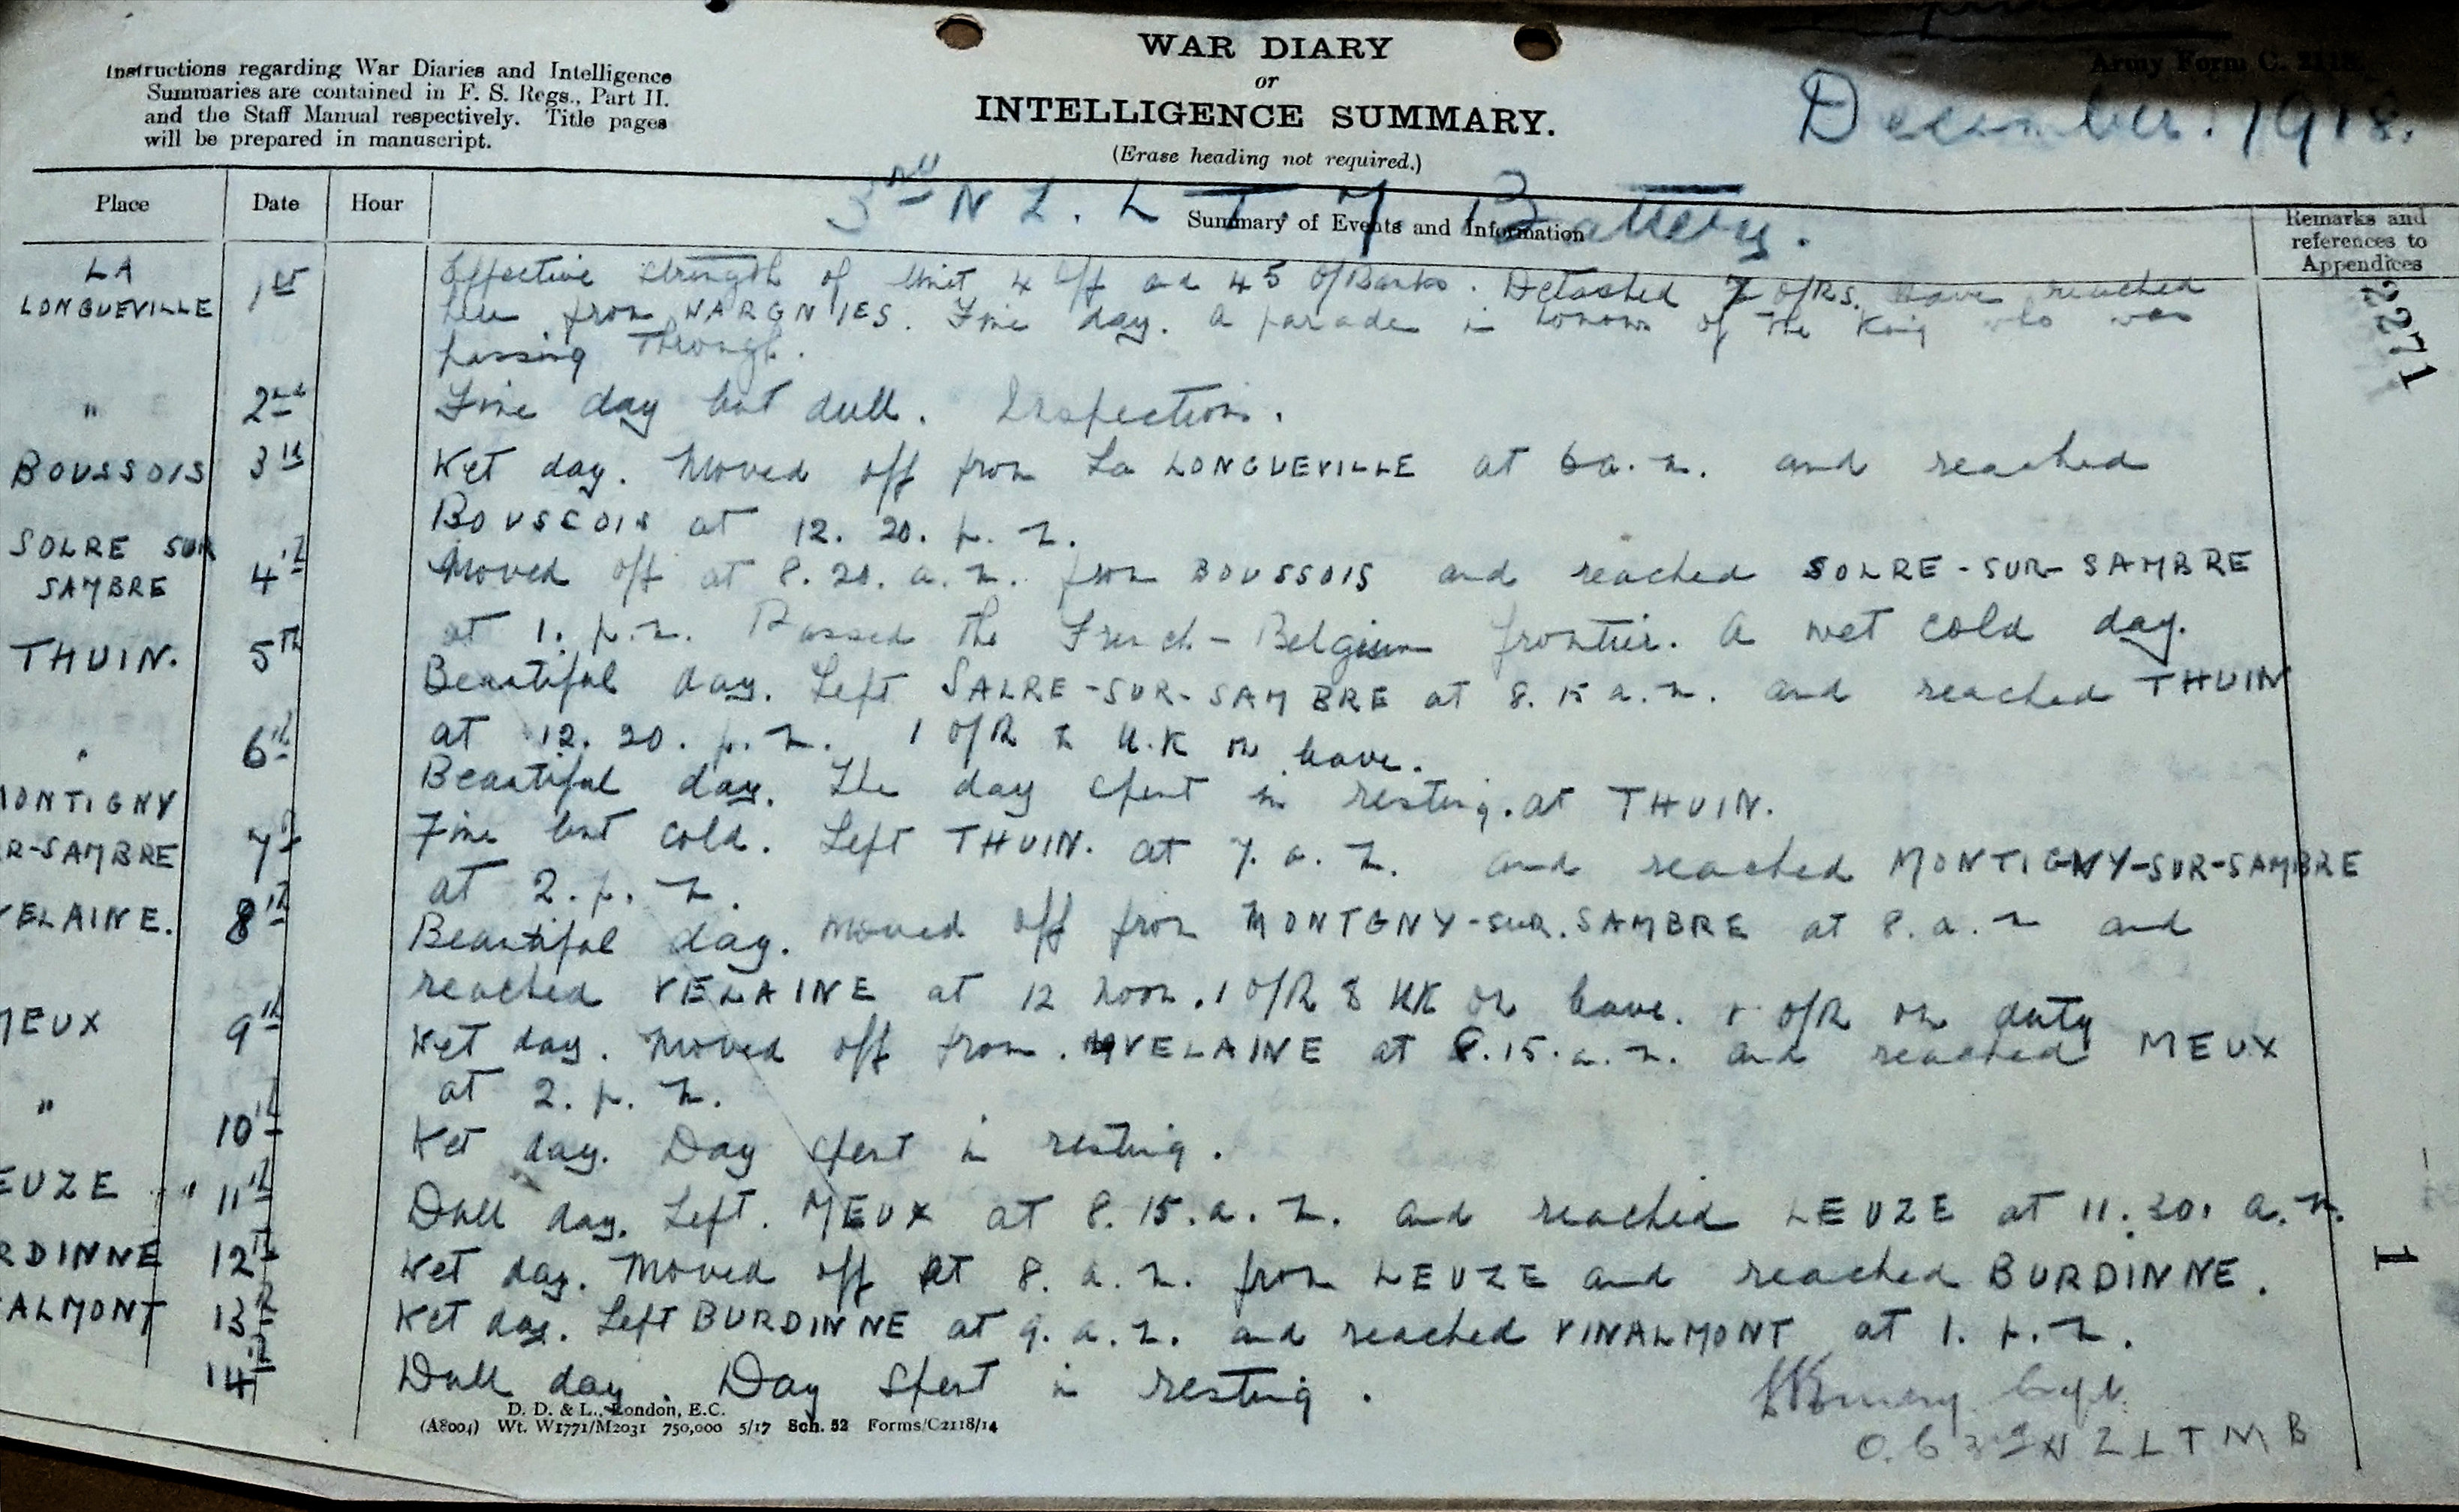 Instructions regarding War Diaries and Intelligence
Summaries are contained in F. S. Regs., Part II.
and the Staff Manual respectively. Title pages
will be prepared in manuscript.
WAR DIARY
or
INTELLIGENCE SUMMARY.
(Erase heading not required.)
Army Form C. 2118.
December. 1918.
3rd N Z. L T. M Battery.
Place Date Hour Summary of Events and Information Remarks and
references to
Appendices
2271
LA
LONGUEVILLE 1st Effective strength of Unit 4 Off and 45 O/Ranks. Detached 7 O/Rs. have reached
here from WARGNIES. Fine day. A parade in honour of the King who was
passing through.
" 2nd Fine day but dull. Inspection.
BOUSSOIS 3rd Wet day. Moved off from La LONGUEVILLE at 6 a.m. and reached
BOUSCOIS at 12. 20. p. m.
SOLRE SUR
SAMBRE 4th Moved off at 8. 20. a. m. from BOUSSOIS and reached SOLRE-SUR-SAMBRE
at 1. p.m. Passed the French-Belgium frontier. A wet cold day.
THUIN. 5th Beautiful day. Left SALRE-SUR-SAMBRE at 8. 15 a.m. and reached THUIN
at 12. 20. p.m. 1 O/R to U.K on leave.
" 6th Beautiful day. The day spent in resting. at THUIN.
MONTIGNY
R-SAMBRE 7th Fine but cold. Left THUIN. at 7. a. m. and reached MONTIGNY-SUR-SAMBRE
at 2. p. m.
VELAINE. 8th Beautiful day. Moved off from MONTGNY-SUR. SAMBRE at 8. a. m and
reached VELAINE at 12 noon. 1 O/R to UK on leave. O/R on duty
MEUX 9th Wet day. Moved off from. VELAINE at 8.15. a. m. and reached MEUX
at 2. p. m.
" 10th Wet day. Day spent in resting.
EUZE " 11th Dull day. Left. MEUX at 8. 15. a. m. and reached LEUZE at 11. 30. a. m.
RDINNE 12th Wet day. Moved off at 8. a. m. from LEUZE and reached BURDINNE.
ALMONT 13th Wet day. Left BURDINNE at 9. a. m. and reached VINALMONT at 1. p. m.
14th Dull day. Day spent in resting.
1
Capt.
O. C 3rd N Z L T M B
D. D. & L., London, E.C.
(A8004) Wt. W1771/M2031 750,000 5/17 Sch. 52 Forms/C2118/14